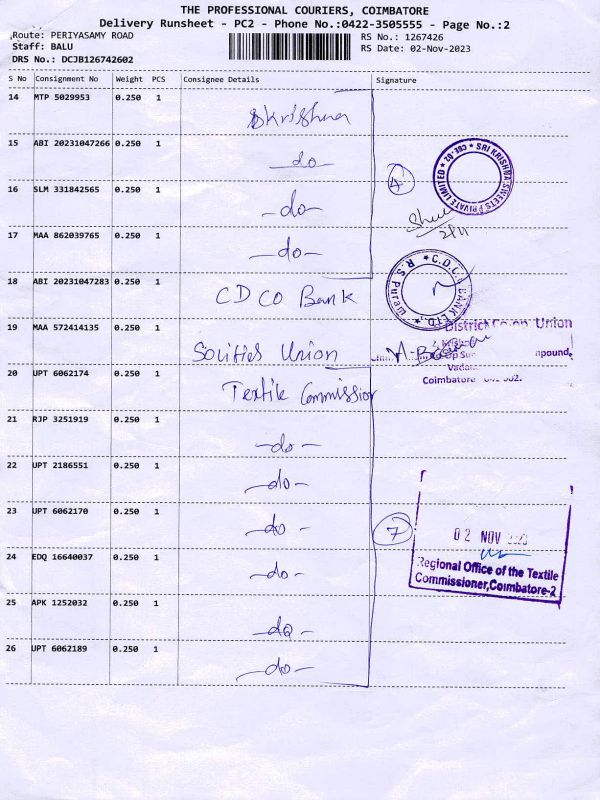 THE PROFESSIONAL COURIERS, COIMBATORE
Delivery Runsheet - PC2 - Phone No.:0422-3505555 - Page No.:2
Route: PERIYASAMY ROAD
Staff: BALU
DRS No.: DCJB126742602
RS No.: 1267426
RS Date: 02-Nov-2023
S No Consignment No Weight PCS Consignee Details Signature
14 MTP 5029953 0.250 1 Skrishna
15 ABI 20231047266 0.250 1 do
16 SLM 331842565 0.250 1 -do-
17 MAA 862039765 0.250 1 -do-
4
SRI KRISHNA SWEETS PRIVATE LIMITED ★ CBE-02 ★
18 ABI 20231047283 0.250 1 CDCO Bank
C.D.C.C BANK LTD., R.S. Puram
19 MAA 572414135 0.250 1 Souities Union
District Co-op Union
Compound,
Coimbatore
20 UPT 6062174 0.250 1 Textile Commission
21 RJP 3251919 0.250 1 -do-
22 UPT 2186551 0.250 1 -do-
23 UPT 6062170 0.250 1 -do-
7
02 NOV
24 EDQ 16640037 0.250 1 -do-
Regional Office of the Textile
Commissioner,Coimbatore-2
25 APK 1252032 0.250 1 -do-
26 UPT 6062189 0.250 1 -do-